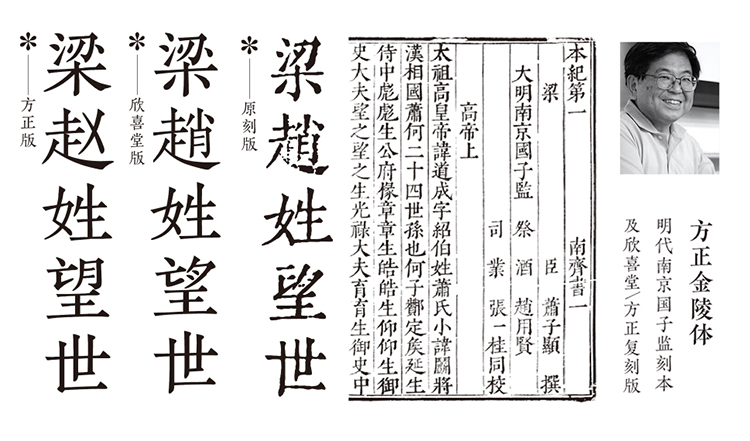 方正金陵体
明代南京国子监刻本
及欣喜堂/方正复刻版
本紀第一 南齊書一
梁 臣 蕭子顯 撰
大明南京國子監 祭酒 趙用賢
司業 張一桂同校
高帝上
太祖高皇帝諱道成字紹伯姓蕭氏小諱鬬將
漢相國蕭何二十四世孫也何子酇定矦延生
侍中彪彪生公府掾章章生皓皓生仰仰生御
史大夫望之望之生光祿大夫育育生御史中
梁趙姓望世
*——原刻版
梁趙姓望世
*——欣喜堂版
梁赵姓望世
*——方正版